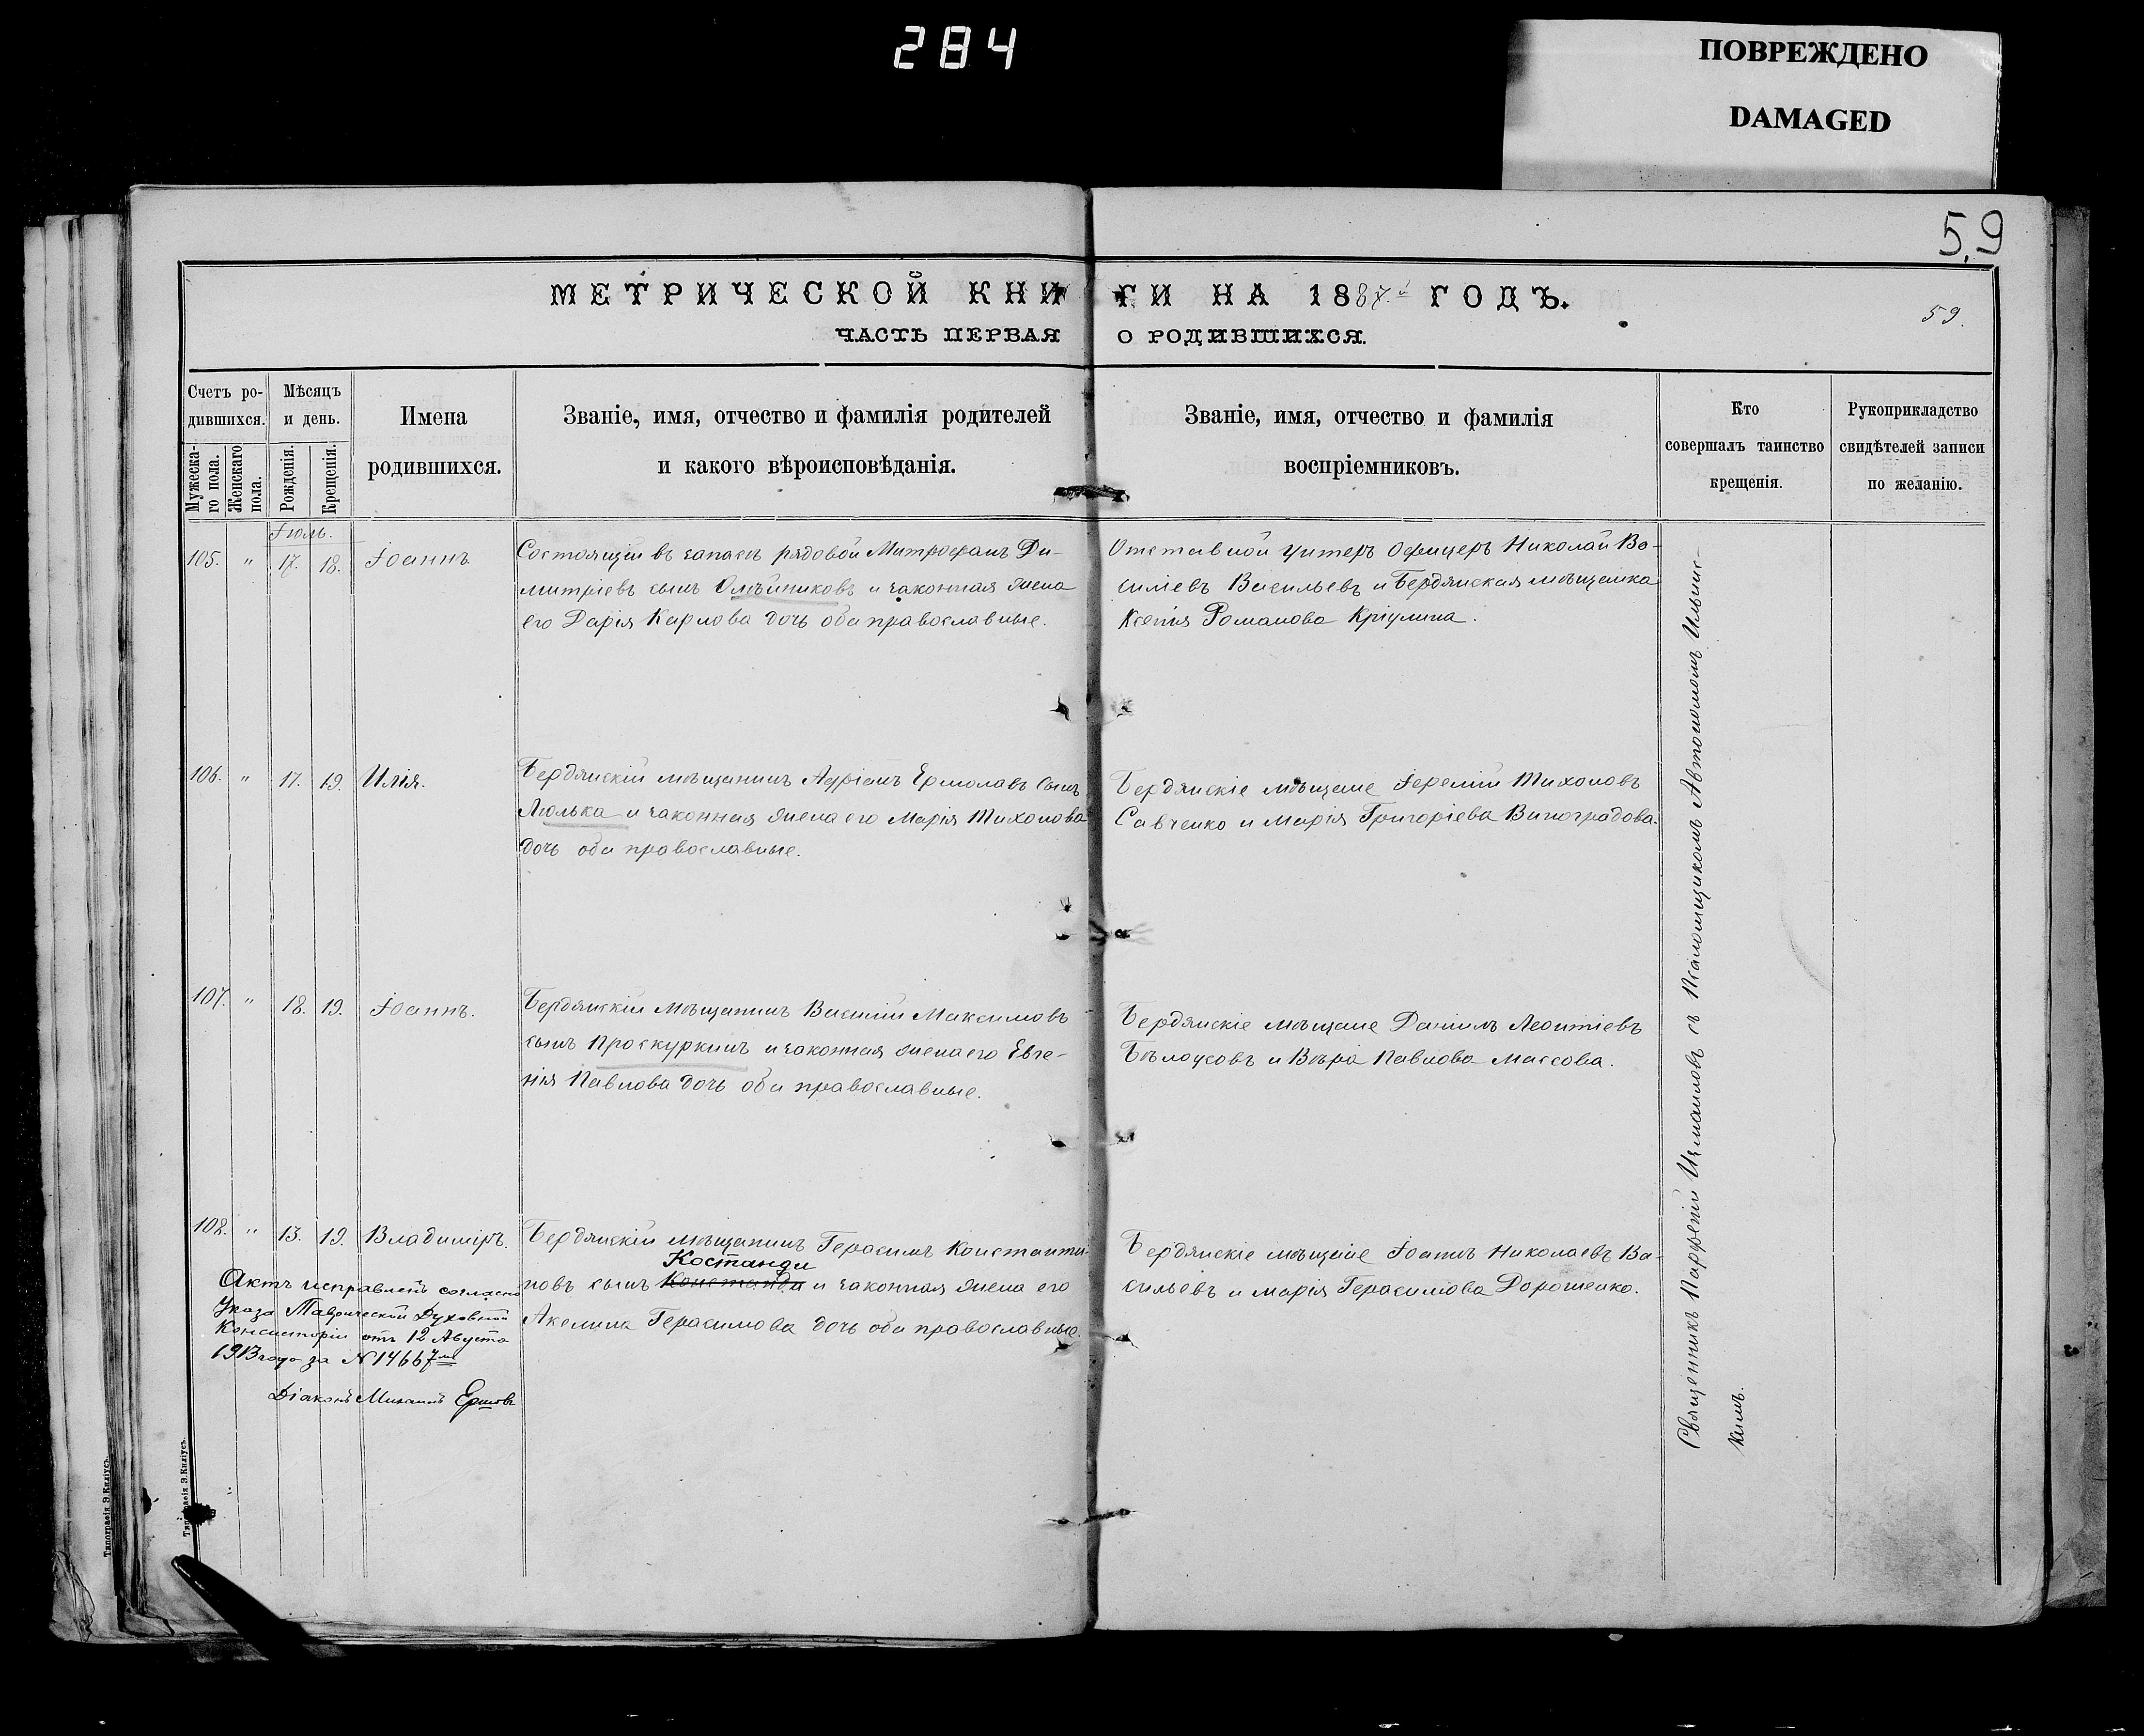 284
ПОВРЕЖДЕНО
DAMAGED
59
МЕТРИЧЕСКОЙ КНИГИ НА 1887 й ГОДЪ.
59.
ЧАСТЬ ПЕРВАЯ О РОДИВШИХСЯ.
Счетъ ро-
дившихся.
Мужеска-
го пола.
Женскаго
пола.
Мѣсяцъ
и день.
Рожденія.
Крещенія.
Имена
родившихся.
Званіе, имя, отчество и фамилія родителей
и какого вѣроисповѣданія.
Званіе, имя, отчество и фамилія
воспріемниковъ.
Кто
совершалъ таинство
крещенія.
Рукоприкладство
свидѣтелей записи
по желанію.
Іюль.
105. " 17. 18. Іоаннъ.
Состоящій въ запасѣ рядовой Митрофанъ Ди-
митріевъ сынъ Олѣйниковъ и законная жена
его Дарія Карпова дочь оба православные.
Отставной унтеръ офицеръ Николай Ва-
силіевъ Васильевъ и Бердянская мѣщанка
Ксенія Романова Кріулина.
106. " 17. 19. Илія.
Бердянскій мѣщанинъ Адріанъ Ермолавъ сынъ
Люлька и законная жена его Марія Тихонова
дочь оба православные.
Бердянскіе мѣщане Іеремій Тихоновъ
Савченко и Марія Григоріева Виноградова.
107. " 18. 19. Іоаннъ.
Бердянскій мѣщанинъ Василій Максимовъ
сынъ Проскуркинъ и законная жена его Евге-
нія Павлова дочь оба православные.
Бердянскіе мѣщане Даніилъ Леонтіевъ
Бѣлоусовъ и Вѣра Павлова Массова.
108. " 13. 19. Владиміръ.
Бердянскій мѣщанинъ Герасимъ Константи-
Костанди
новъ сынъ Константи и законная жена его
Акелина Герасимова дочь оба православные.
Бердянскіе мѣщане Іоаннъ Николаевъ Ва-
сильевъ и Марія Герасимова Дорошенко.
Актъ исправленъ согласно
Указа Таврической Духовной
Консисторіи отъ 12 Августа
1913 года за № 14667 мъ
Діаконъ Михаилъ Ершовъ
Священникъ Парфеній Измаиловъ съ Псаломщикомъ Автономомъ Ильинс-
кимъ.
Типографія Э.Киліусъ.
Типографія Э.Киліусъ.